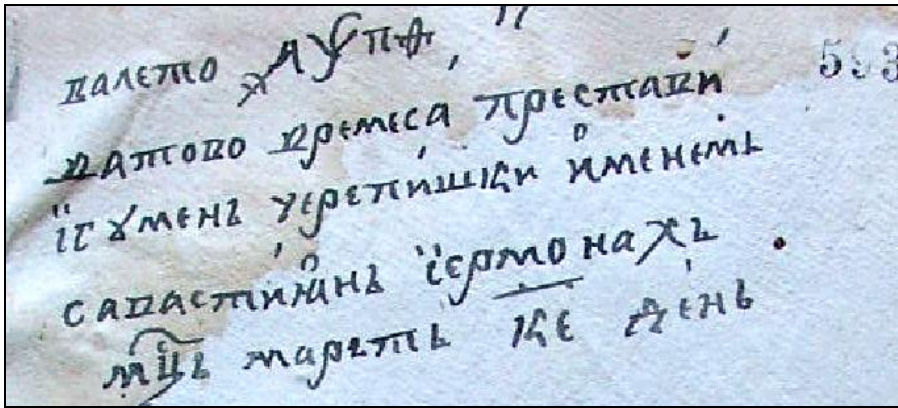 валето ҂аѱпѳ
ватово времеса престави
їгꙋменъ черепишки именемь
савастиѩнъ їермонахъ .
мц҃ъ маретъ к҃е день